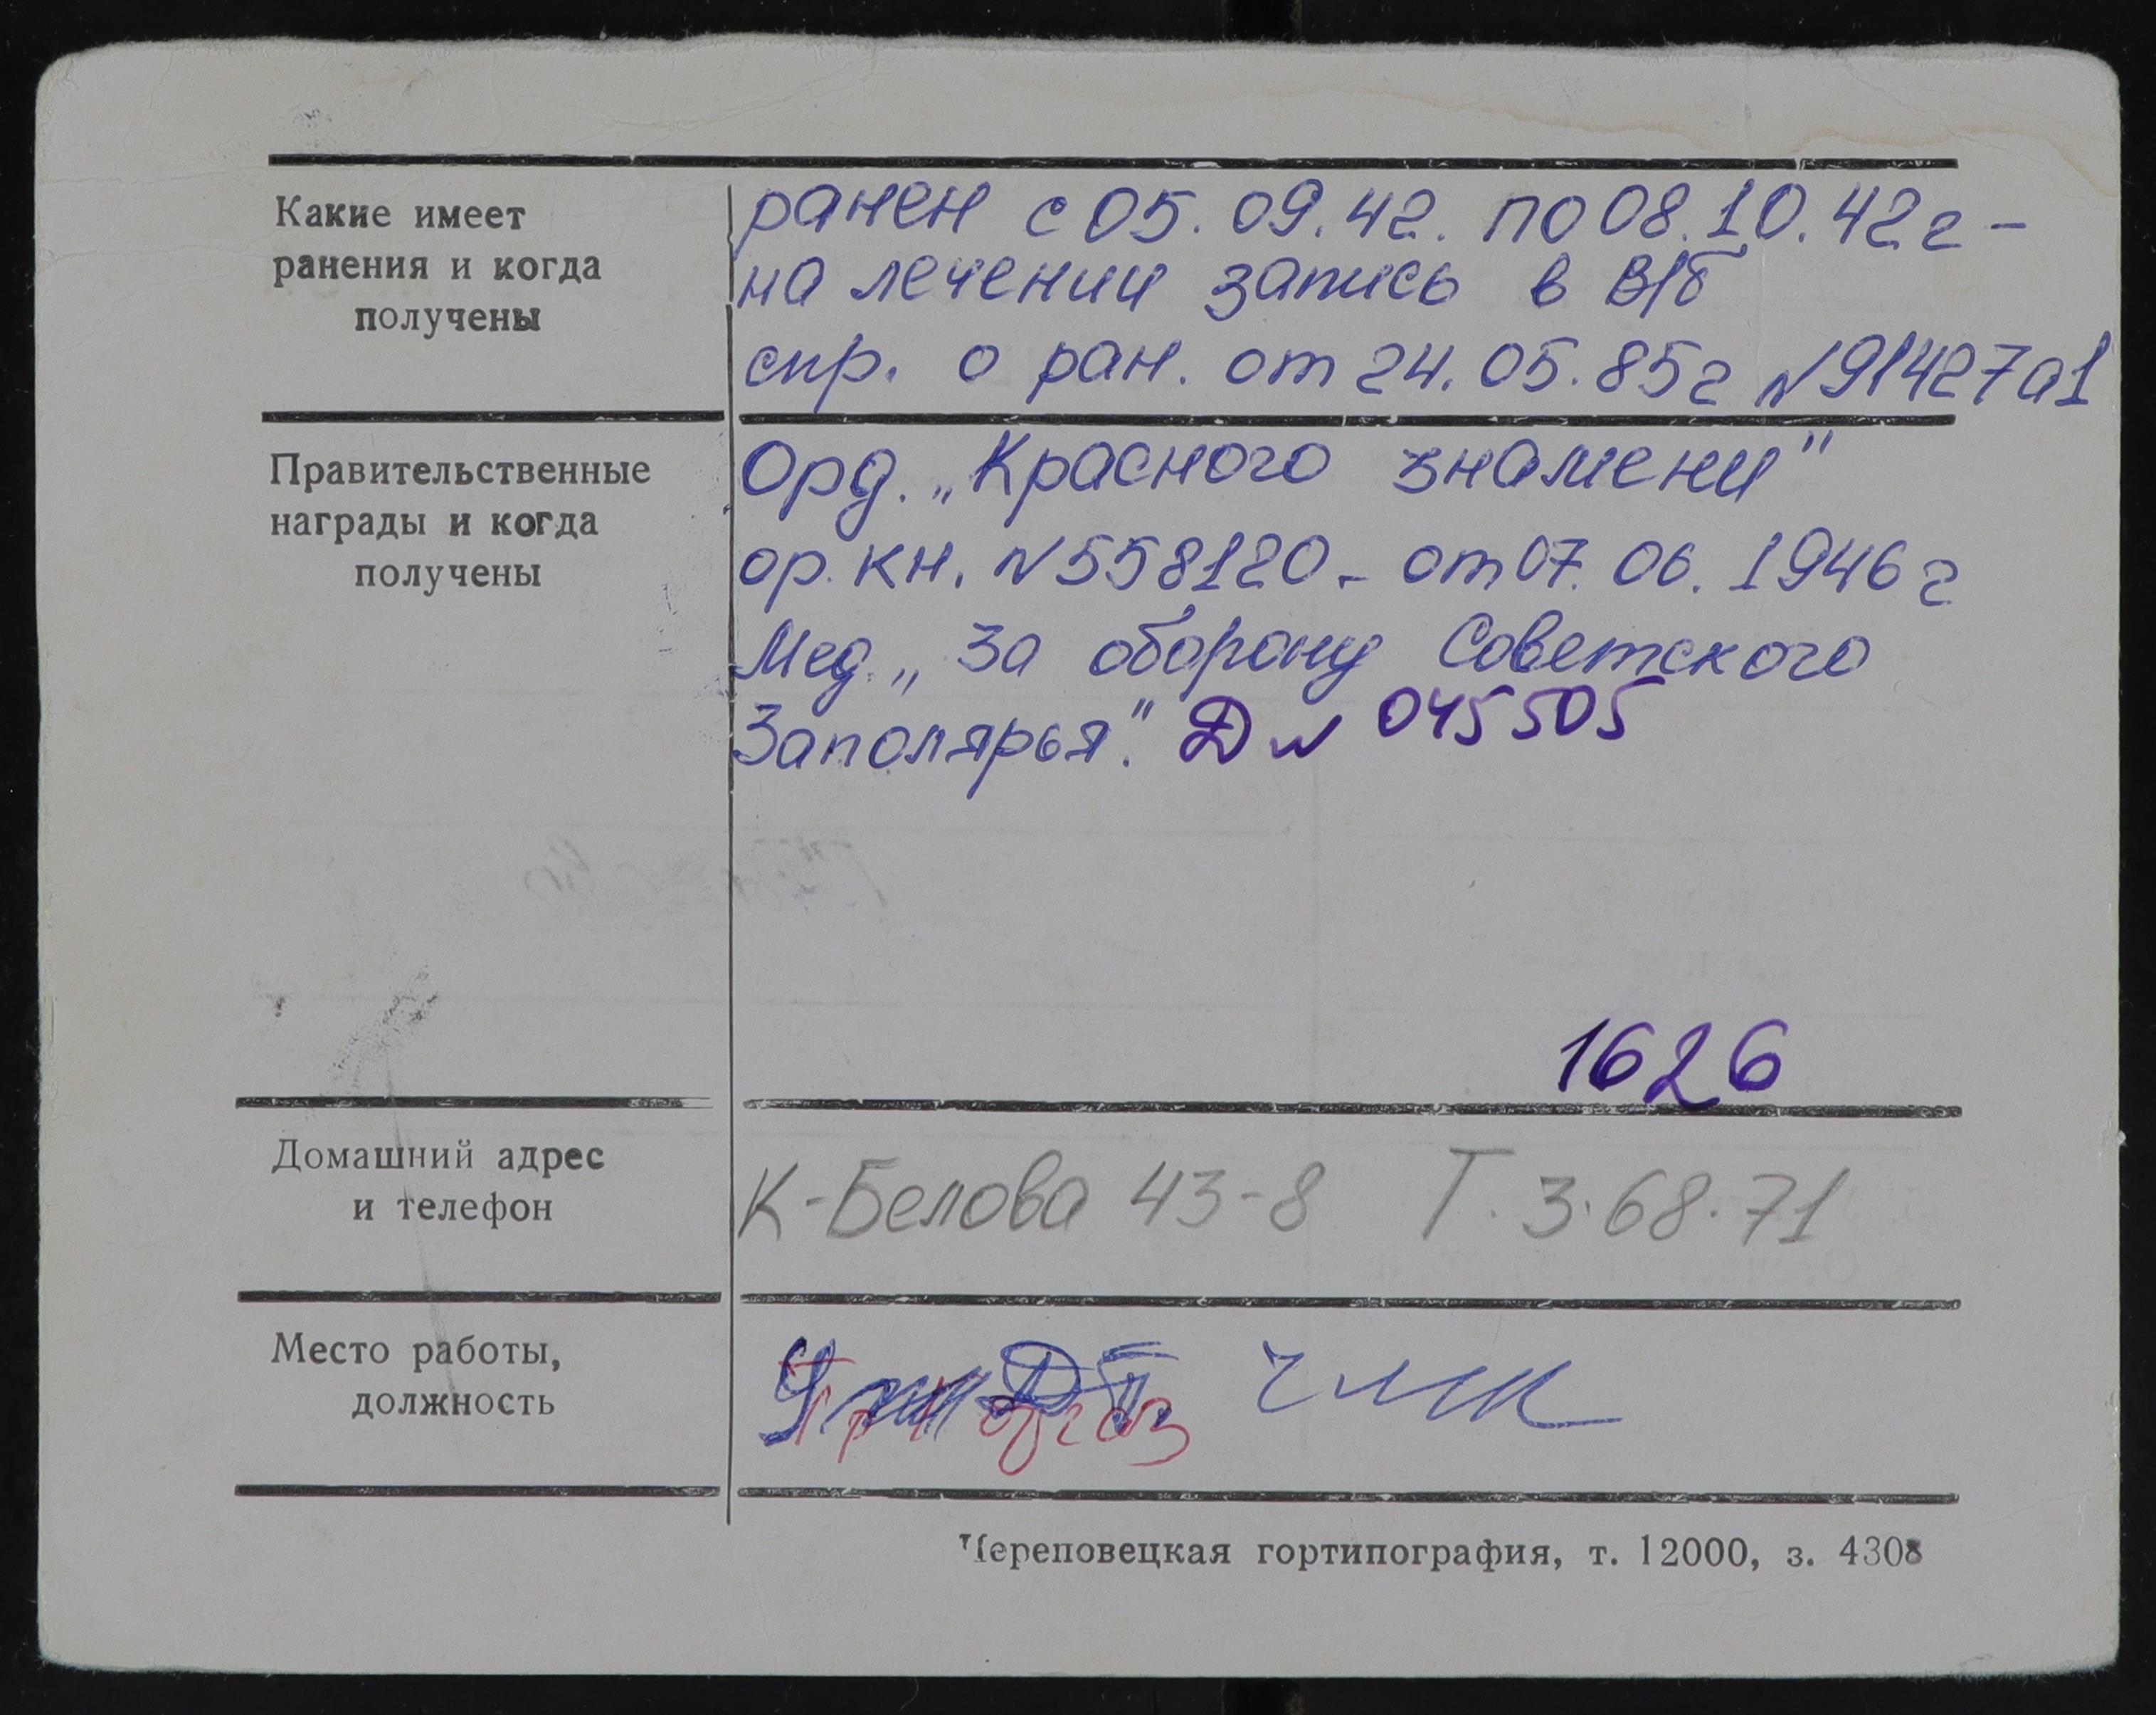 Какие имеет
ранения и когда
получены
ранен с 05.09.42. по 08.10.42г –
на лечении запись в В/б
спр. о ран. от 24.05.85г №91427а1
Правительственные
награды и когда
получены
Орд. „Красного знамени"
ор. кн. №558120 - от 07.06.1946г
Мед. „За оборону Советского
Заполярья". Д № 045505
1626
Домашний адрес
и телефон
К-Белова 43-8 Т. 3.68.71
Место работы,
должность
ЧМК
Череповецкая гортипография, т. 12000, з. 4308